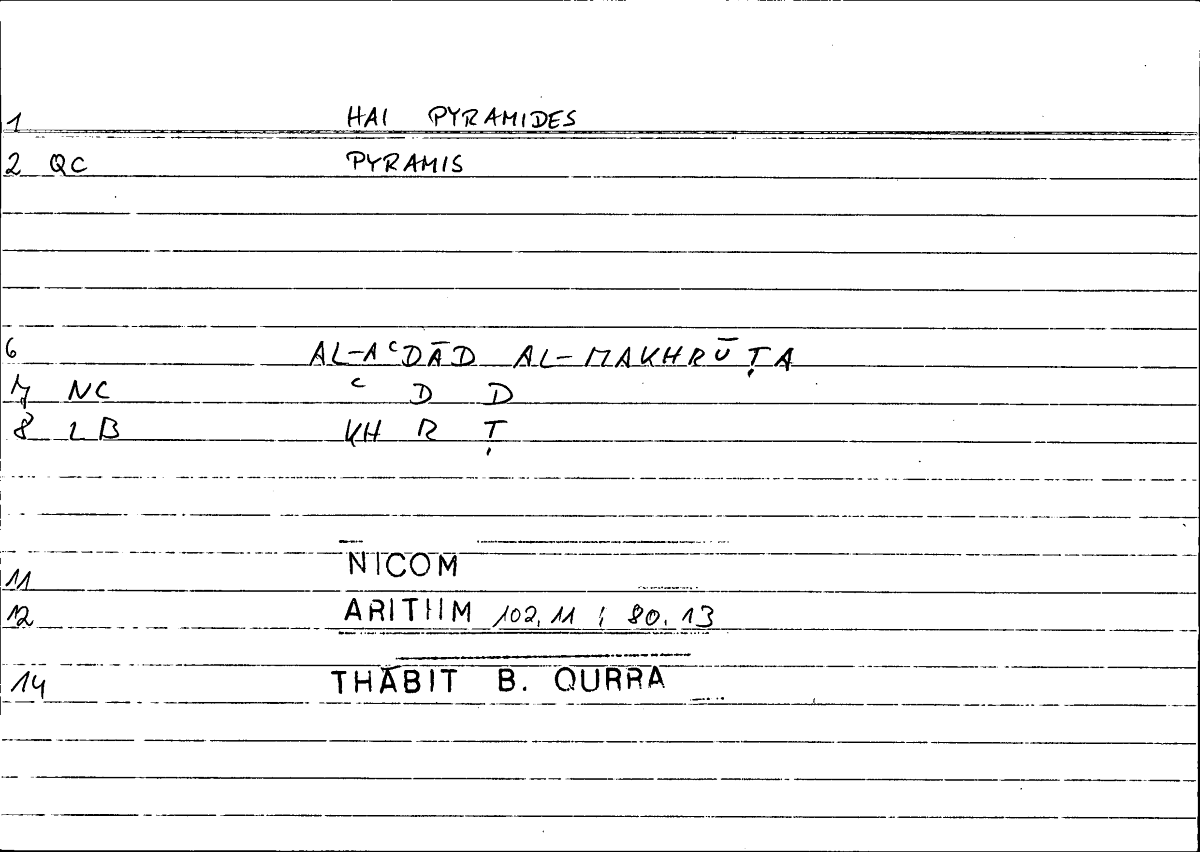 1 HAI PYRAMIDES
2 QC PYRAMIS
6 AL-AᶜDĀD AL-MAKHRŪṬA
7 NC ᶜ D D
8 2B KH R Ṭ
11 NICOM
12 ARITHM 102,11 ; 80.13
14 THĀBIT B. QURRA